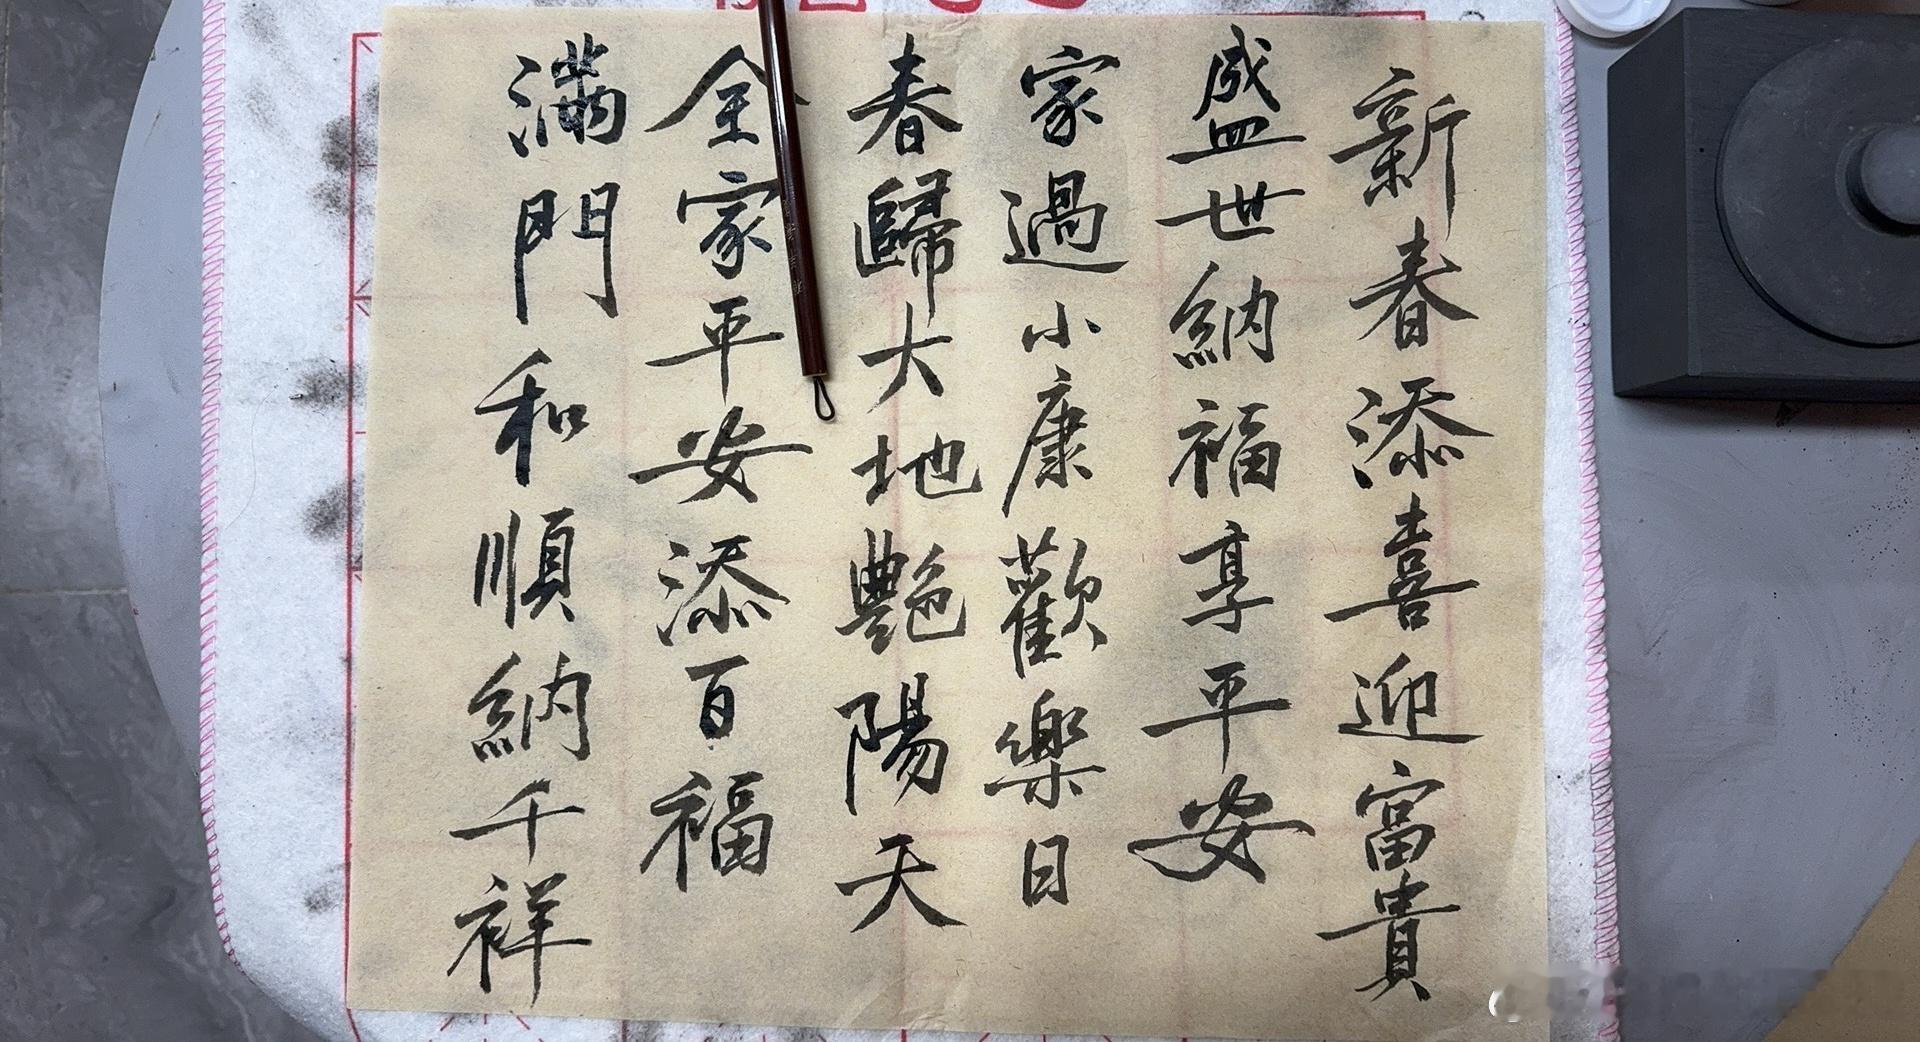 新春添喜迎富貴
盛世納福享平安
家過小康歡樂日
春歸大地艷陽天
全家平安添百福
滿門和順納千祥